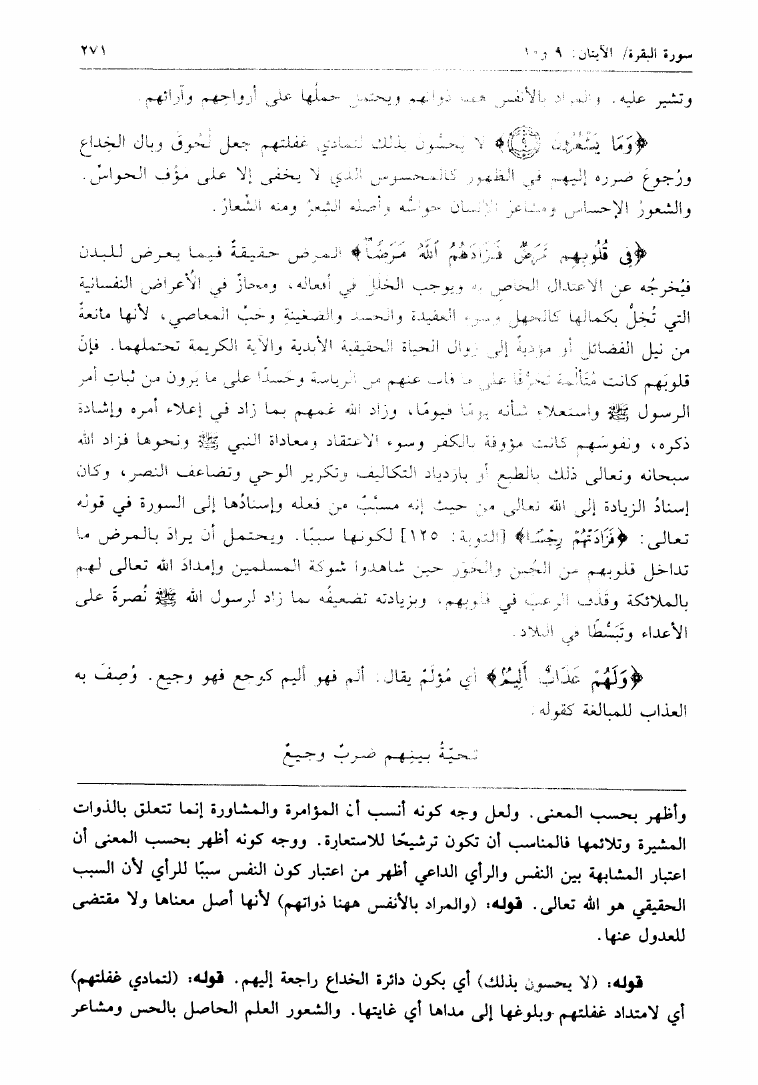 سورة البقرة/ الآيتان: ٩ و١٠
٢٧١
وتشير عليه. والمراد بالأنفس ههنا ذواتهم ويحتمل حملُها على أرواحهم وآرائهم.
﴿وَمَا يَشْعُرُونَ ﴿٩﴾﴾ لا يحسّون بذلك لتمادي غفلتهم جعل لُحوقَ وبال الخِداع
ورُجوعَ ضرره إليهم في الظهور كالمحسوس الذي لا يخفى إلا على مؤف الحواسّ.
والشعورُ الإحساس ومشاعرُ الإنسان حواسُّه وأصله الشعرُ ومنه الشّعارُ.
﴿فِى قُلُوبِهِم مَّرَضٌ فَزَادَهُمُ ٱللَّهُ مَرَضًاۖ﴾ المرض حقيقةً فيما يعرض للبدن
فيُخرجُه عن الاعتدال الخاص به ويوجب الخلل في أفعاله، ومجازٌ في الأعراض النفسانية
التي تُخلُّ بكمالها كالجهل وسوء العقيدة والحسد والضغينةِ وحُبِّ المعاصي، لأنها مانعةٌ
من نيل الفضائل أو مؤديةٌ إلى زوال الحياة الحقيقية الأبدية والآية الكريمة تحتملهما. فإنّ
قلوبَهم كانت مُتألّمة تحرُّقًا على ما فات عنهم من الرياسة وحَسدًا على ما يَرون من ثباتِ أمر
الرسول ﷺ واستعلاء شأنه يومًا فيومًا، وزاد الله غمهم بما زاد في إعلاء أمره وإشادة
ذكره، ونفوسُهم كانت مؤوفة بالكفر وسوء الاعتقاد ومعاداة النبي ﷺ ونحوها فزاد الله
سبحانه وتعالى ذلك بالطبع أو بازدياد التكاليف وتكرير الوحي وتضاعف النصر، وكان
إسنادُ الزيادة إلى الله تعالى من حيث إنه مسبَّبٌ من فعله وإسنادُها إلى السورة في قوله
تعالى: ﴿فَزَادَتْهُمْ رِجْسًا﴾ [التوبة: ١٢٥] لكونها سببًا. ويحتمل أن يرادَ بالمرض ما
تداخل قلوبهم من الجُبن والخَوَر حين شاهدوا شوكة المسلمين وإمدادَ الله تعالى لهم
بالملائكة وقذف الرعب في قلوبهم، وبزيادته تضعيفُه بما زاد لرسول الله ﷺ نُصرةً على
الأعداء وتَبَسُّطًا في البلاد.
﴿وَلَهُمْ عَذَابٌ أَلِيمٌۢ﴾ أي مُؤلَمٌ يقال: ألم فهو أليم كوجع فهو وجيع. وُصِفَ به
العذاب للمبالغة كقوله:
تحيّةُ بينِهم ضربٌ وجيعٌ
وأظهر بحسب المعنى. ولعل وجه كونه أنسب أن المؤامرة والمشاورة إنما تتعلق بالذوات
المشيرة وتلائمها فالمناسب أن تكون ترشيحًا للاستعارة. ووجه كونه أظهر بحسب المعنى أن
اعتبار المشابهة بين النفس والرأي الداعي أظهر من اعتبار كون النفس سببًا للرأي لأن السبب
الحقيقي هو الله تعالى. قوله: (والمراد بالأنفس ههنا ذواتهم) لأنها أصل معناها ولا مقتضى
للعدول عنها.
قوله: (لا يحسون بذلك) أي بكون دائرة الخداع راجعة إليهم. قوله: (لتمادي غفلتهم)
أي لامتداد غفلتهم وبلوغها إلى مداها أي غايتها. والشعور العلم الحاصل بالحس ومشاعر